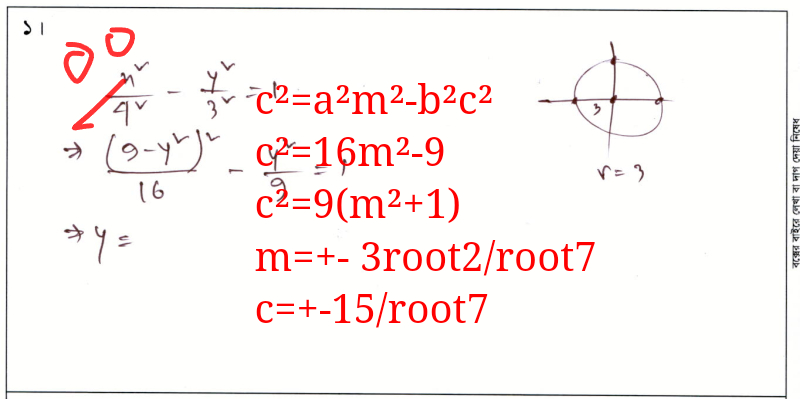 ১।
0 0
x²/4² - y²/3² = 1
c²=a²m²-b²c²
⇒ (9-y²)²/16 - y²/9 = 1
c²=16m²-9
c²=9(m²+1)
⇒ y =
m=+- 3root2/root7
c=+-15/root7
3
r = 3
বক্সের বাইরে লেখা বা দাগ দেয়া নিষেধ